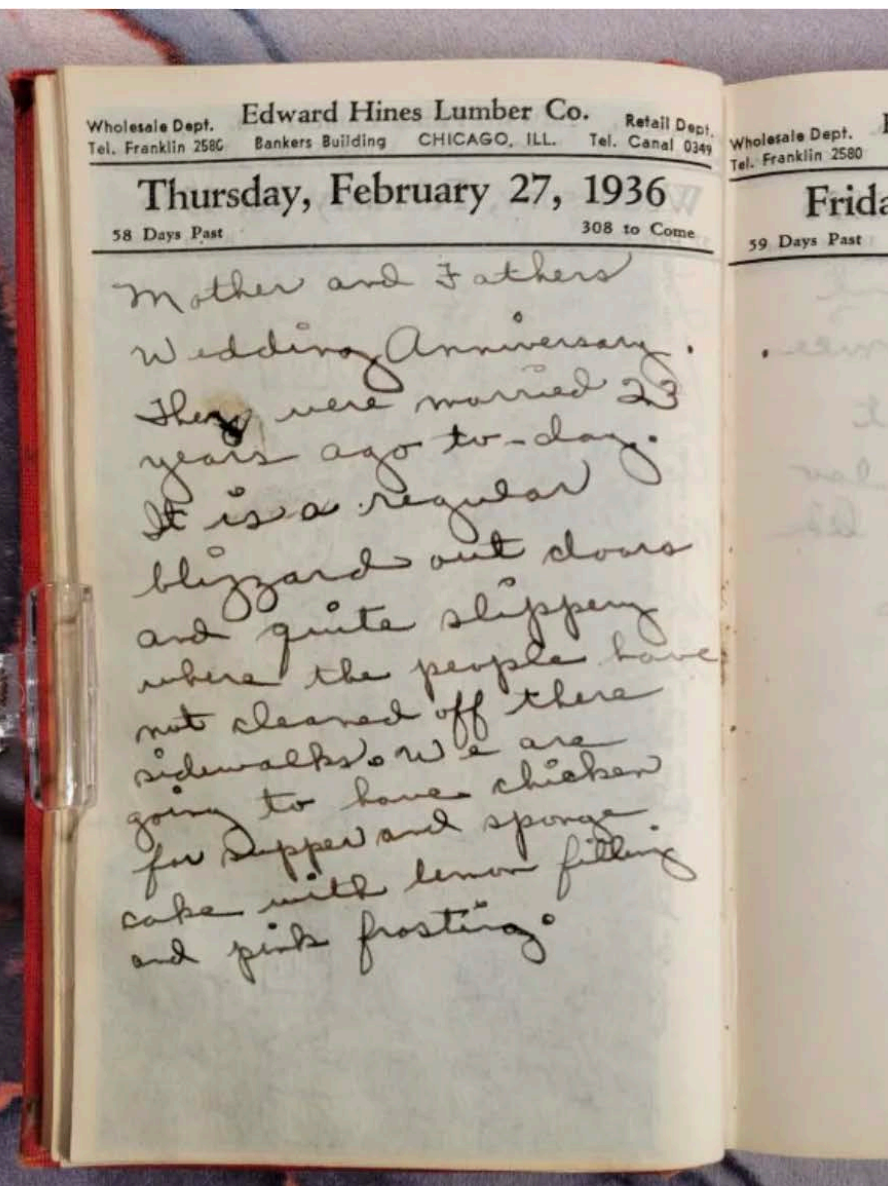 Wholesale Dept. Edward Hines Lumber Co. Retail Dept.
Tel. Franklin 2580 Bankers Building CHICAGO, ILL. Tel. Canal 0349
Thursday, February 27, 1936
58 Days Past 308 to Come
Mother and Fathers
Wedding Anniversary.
They were married 23
years ago to-day.
It is a regular
blizzard out doors
and quite slippery
where the people have
not cleaned off there
sidewalks. We are
going to have chicken
for supper and sponge
cake with lemon filling
and pink frosting.
Wholesale Dept.
Tel. Franklin 2580
Frida
59 Days Past